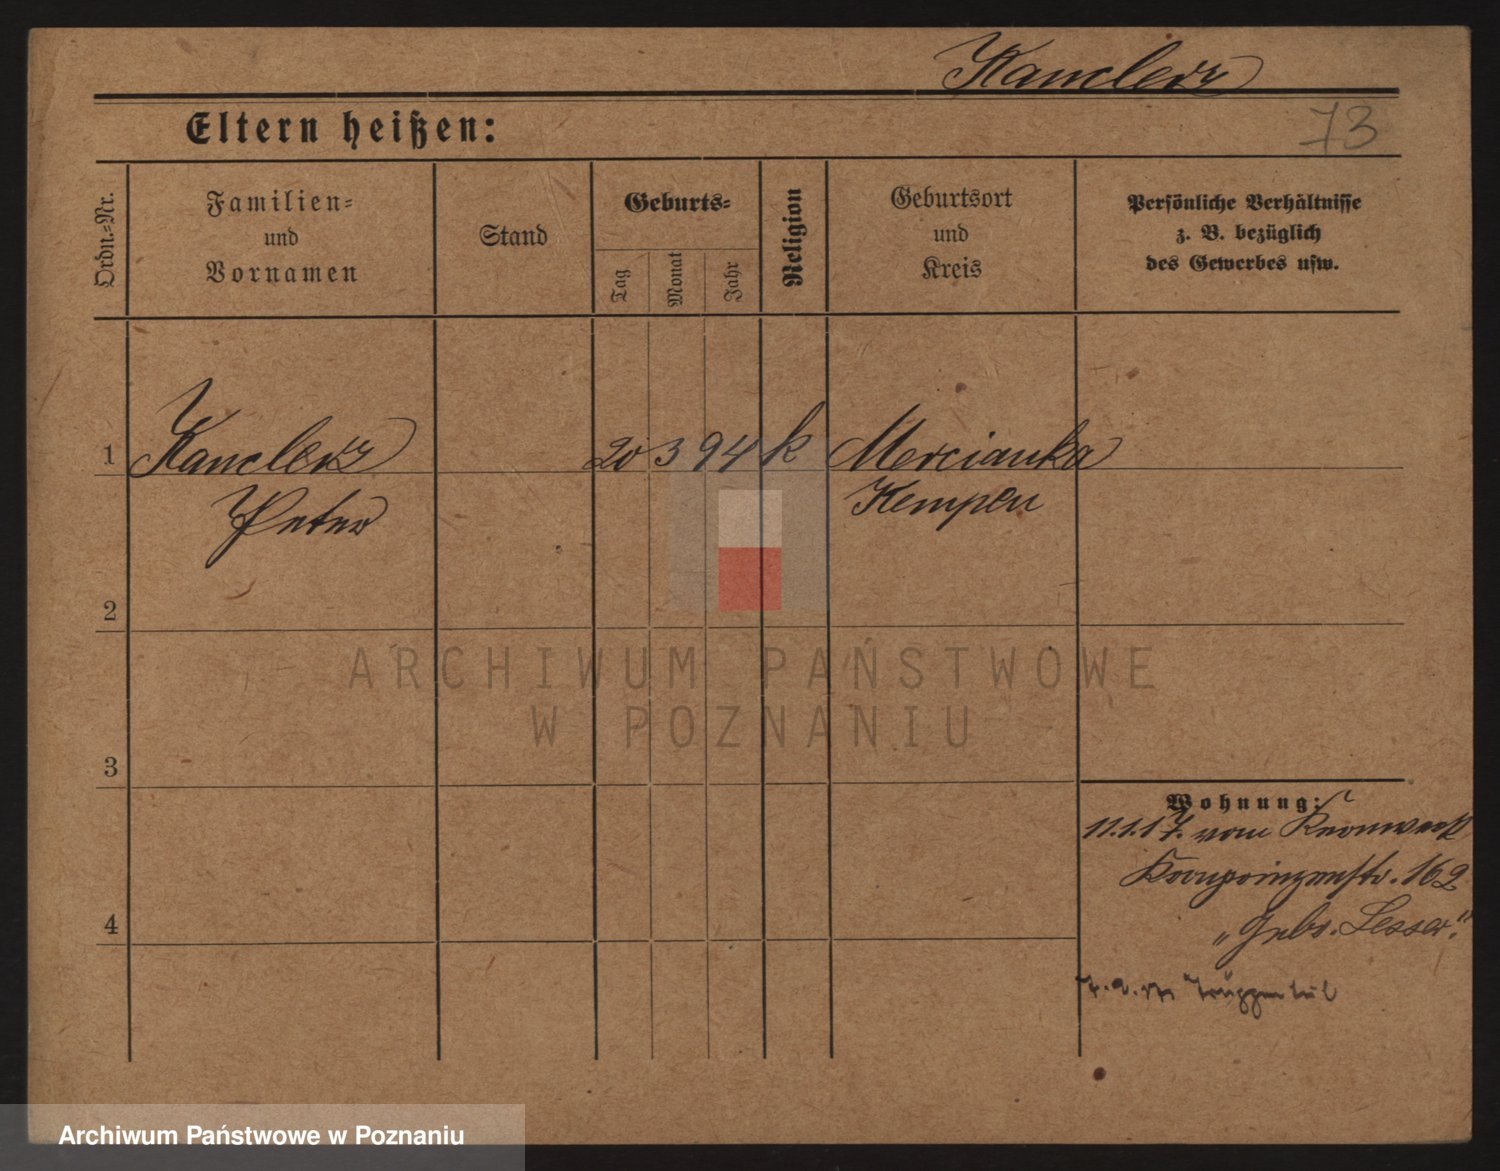 Kanclerz
73
Eltern heißen:
Ordn.-Nr.
Familien-
und
Vornamen
Stand
Geburts-
Tag
Monat
Jahr
Religion
Geburtsort
und
Kreis
Persönliche Verhältnisse
z. B. bezüglich
des Gewerbes usw.
1 Kanclerz 20 3 94 k Mercianka
Peter Kempen
2
3
4
Wohnung:
11.1.17. vom Kronwerk
Kronprinzenstr. 162
„Gebr. Lesser“
Truppenteil
ARCHIWUM PAŃSTWOWE
W POZNANIU
Archiwum Państwowe w Poznaniu